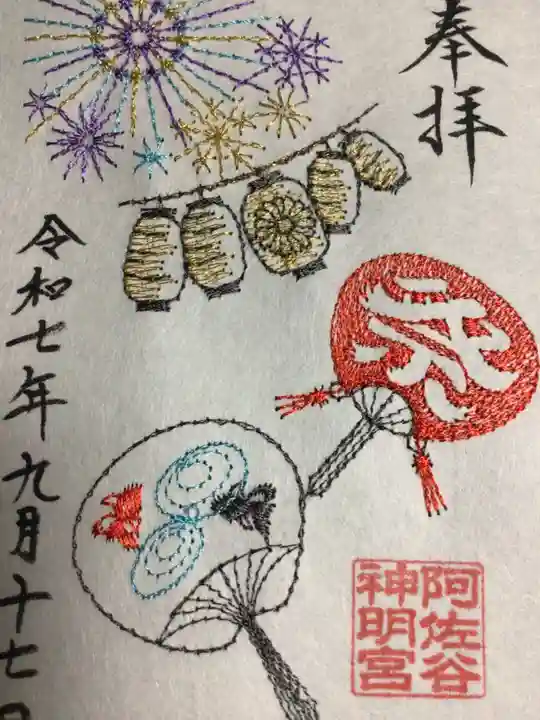 奉拝
祭
阿佐谷
神明宮
令和七年九月十七日